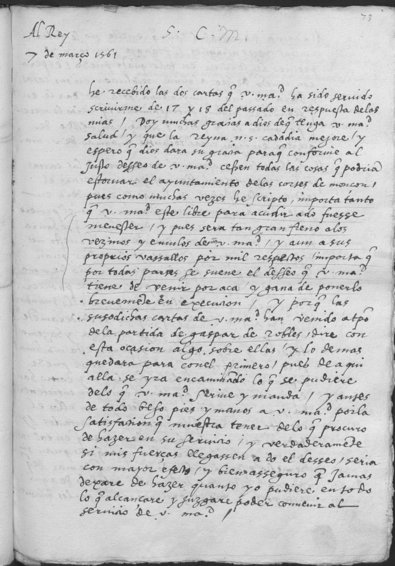 73
Al Rey
S. C. M.
7 de março 1561
he recebido las dos cartas q̃ v. mag.d ha sido seruido
scriuirme de 17 y 18 del passado en respuesta de las
mias / Doy muchas gracias a dios de q̃ tẽga v. mag.d
salud / y que la reyna n. s. cada dia mejore / y
espero q̃ dios dara su gracia paraq̃ conforme al
justo desseo de v. ma.d cessen todas las cosas q̃ podria
estoruar el ayuntamiento de las cortes de monçon /
pues como muchas vezes he scripto, importa tanto
q̃ v. ma.d este libre para acudir a do fuesse
menester / y pues sera tan gran freno a los
vezinos y emulos de v. ma.d / y aun a sus
proprios vassallos por mil respectos / importa q̃
por todas partes se suene el desseo q̃ v. ma.d
tiene de venir por aca / y gana de ponerlo
breuemẽte en execucion / y porq̃ las
susodichas cartas de v. ma.d han venido a tpõ
dela partida de gaspar de robles / dire con
esta ocasion algo sobre ellas / y lo demas
quedara para con el primero / pues de aqui
alla se yra encaminãdo lo q̃ se pudiere
delo q̃ v. ma.d scriue y manda / y antes
de todo beso pies y manos a v. ma.d por la
satisfacion q̃ muestra tener delo q̃ procuro
de hazer en su seruicio / y verdaderamẽte
si mis fuerças llegassen a do el desseo / seria
con mayor / y bien asseguro q̃ jamas
dexare de hazer quanto yo pudiere en todo
lo q̃ alcançare y juzgare poder conuenir al
seruicio de v. ma.d /